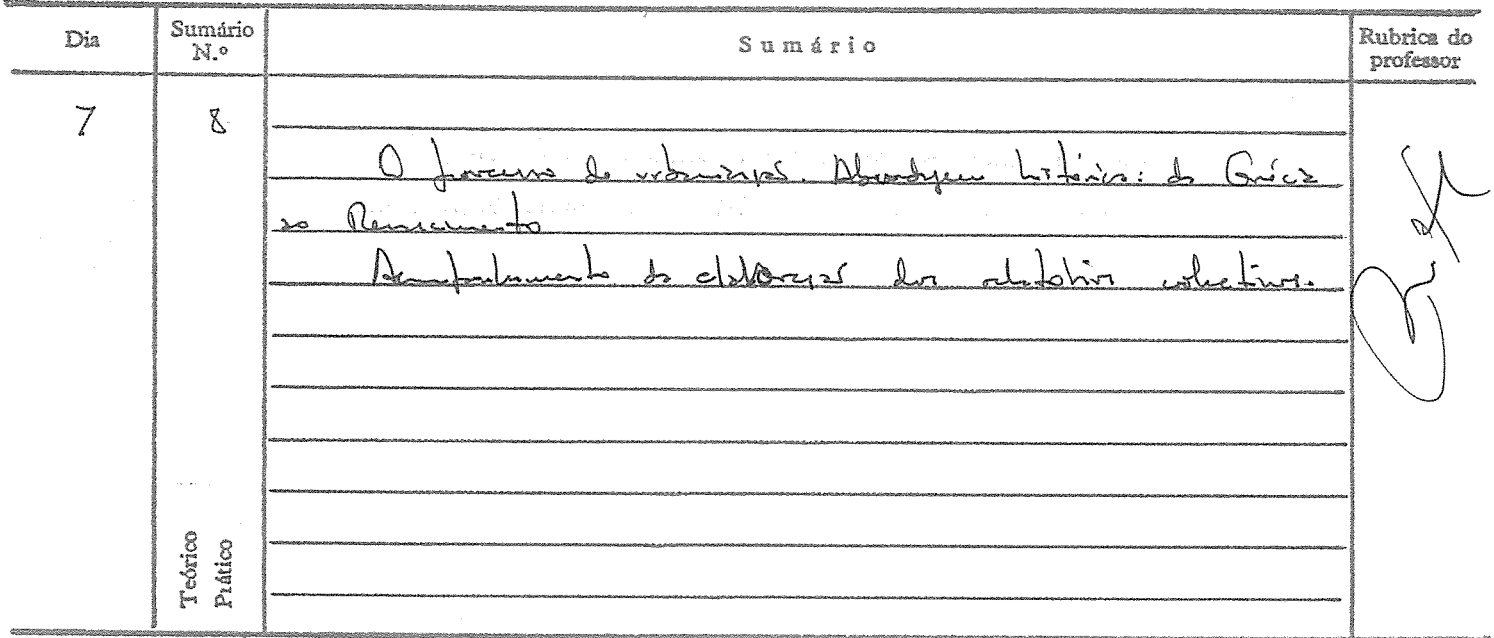 Dia Sumário N.º Sumário Rubrica do professor
7 8
O processo de urbanização. Abordagem histórica: da Grécia
ao Renascimento
Acompanhamento da elaboração dos relatórios colectivos.
Teórico
Prático